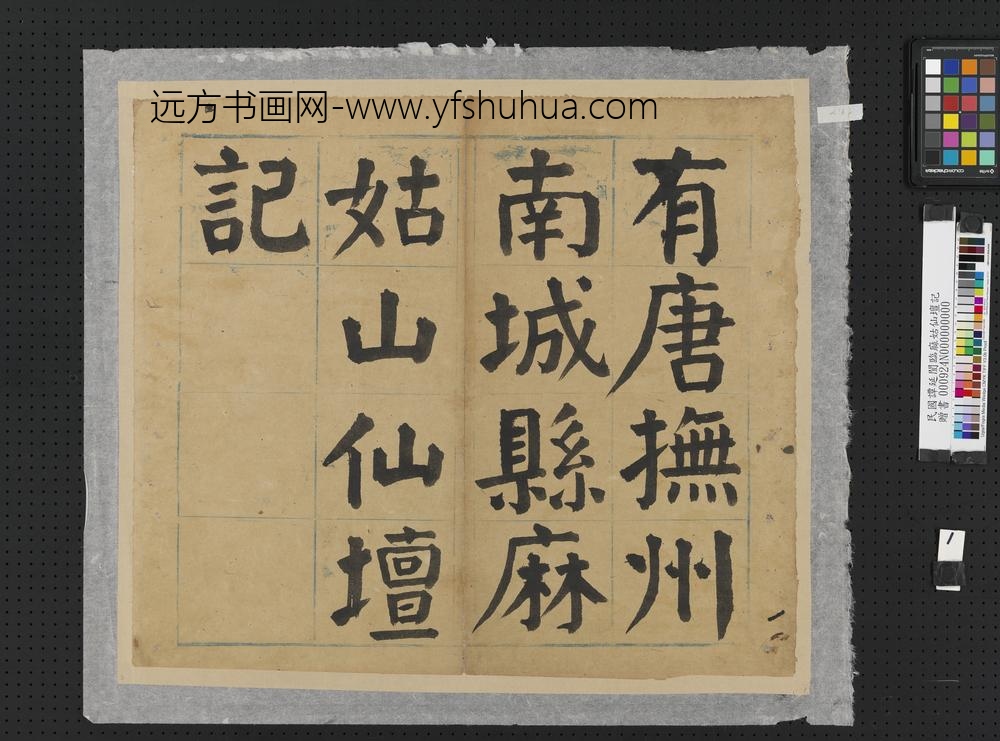 远方书画网-www.yfshuhua.com
有唐撫州
南城縣麻
姑山仙壇
記
民國譚延闓臨麻姑仙壇記
贈書 000924N000000000